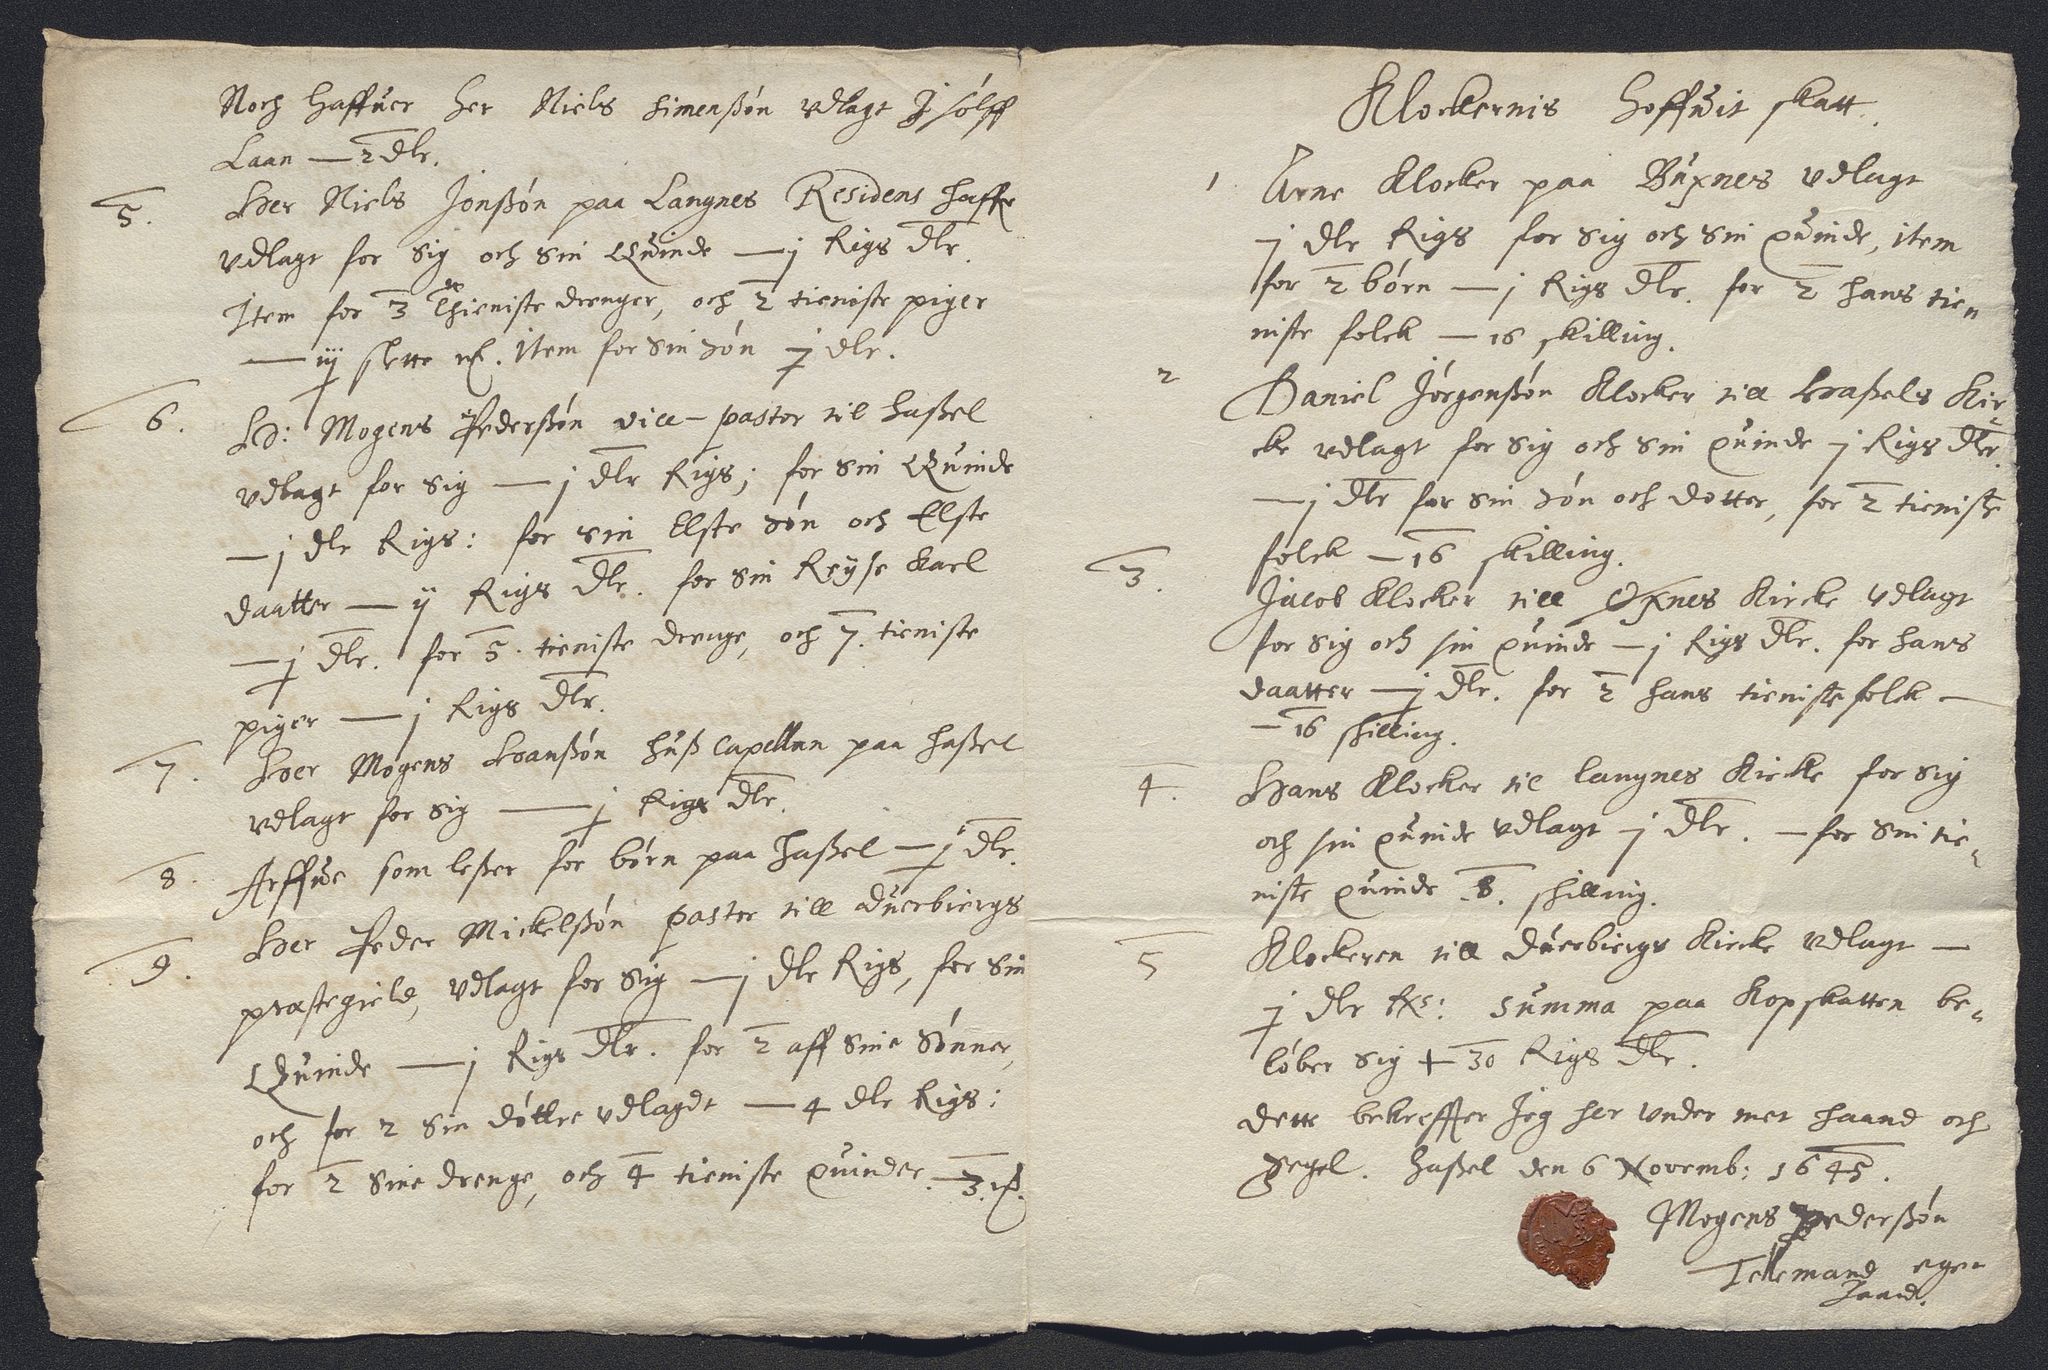 Noch haffuer Her Niels Simenßøn vdlagt J sølff
Laan — 2 dlr.
5. Her Niels Jonßøn paa Langnes Residens haffr
vdlagt for sig och sin Quinde — j Rigs dlr.
Item for 3 Thieniste drenger, och 2 tieniste piger
— iij slette mk. Item for sin søn j dlr.
6. H: Mogens Pederßøn vice-pastor til Haßel
vdlagt for sig — j dlr Rigs; for sin Quinde
— j dlr Rigs: for sin Elste søn och Elste
daatter — ij Rigs dlr. for sin Reyse Karl
— j dlr. for 5. tieniste drenge, och 7. tieniste
piger — j Rigs dlr.
7. Her Mogens Hanßøn Huß Capellan paa Haßel
vdlagt for sig — j Rigs dlr.
8. Arffwe som leßer for børn paa Haßel — j dlr.
9. Her Peder Mickelßøn pastor till Duerbiergs
præstegield, vdlagt for sig — j dlr Rigs, for sin
Quinde — j Rigs dlr. for 2 aff sine Sønner,
och for 2 sin døttre vdlagdt — 4 dlr Rigs:
for 2 sine drenge, och 4 tieniste quinder. — 3. mk.
Klockernis Hoffwit skatt.
1 Arne Klocker paa Buxnes vdlagt
j dlr Rigs for sig och sin quinde, item
for 2 børn — j Rigs dlr. for 2 hans tie-
niste folck — 16 skilling.
2 Daniel Jørgenßøn Klocker till Haßels Kir-
cke vdlagt for sig och sin quinde j Rigs dlr.
— j dlr for sin søn och dotter, for 2 tieniste
folck — 16 skilling.
3. Jacob Klocker till Øxnes Kircke vdlagt
for sig och sin quinde — j Rigs dlr. for hans
daatter — j dlr. for 2 hans tieniste folck —
— 16 skilling.
4. Hans Klocker til Langnes Kircke for sig
och sin quinde vdlagt j dlr. — for sin tie-
niste quinde .8. skilling.
5 Klockeren till Duerbiergs Kircke vdlagt —
j dlr Rs: Summa paa Kopskatten be-
løber sig + 30 Rigs dlr.
Dette bekreffter Jeg her vnder met haand och
Segel. Haßel den 6 Novemb: 1645.
Mogens Pederßøn
Tellemand egen
haand.